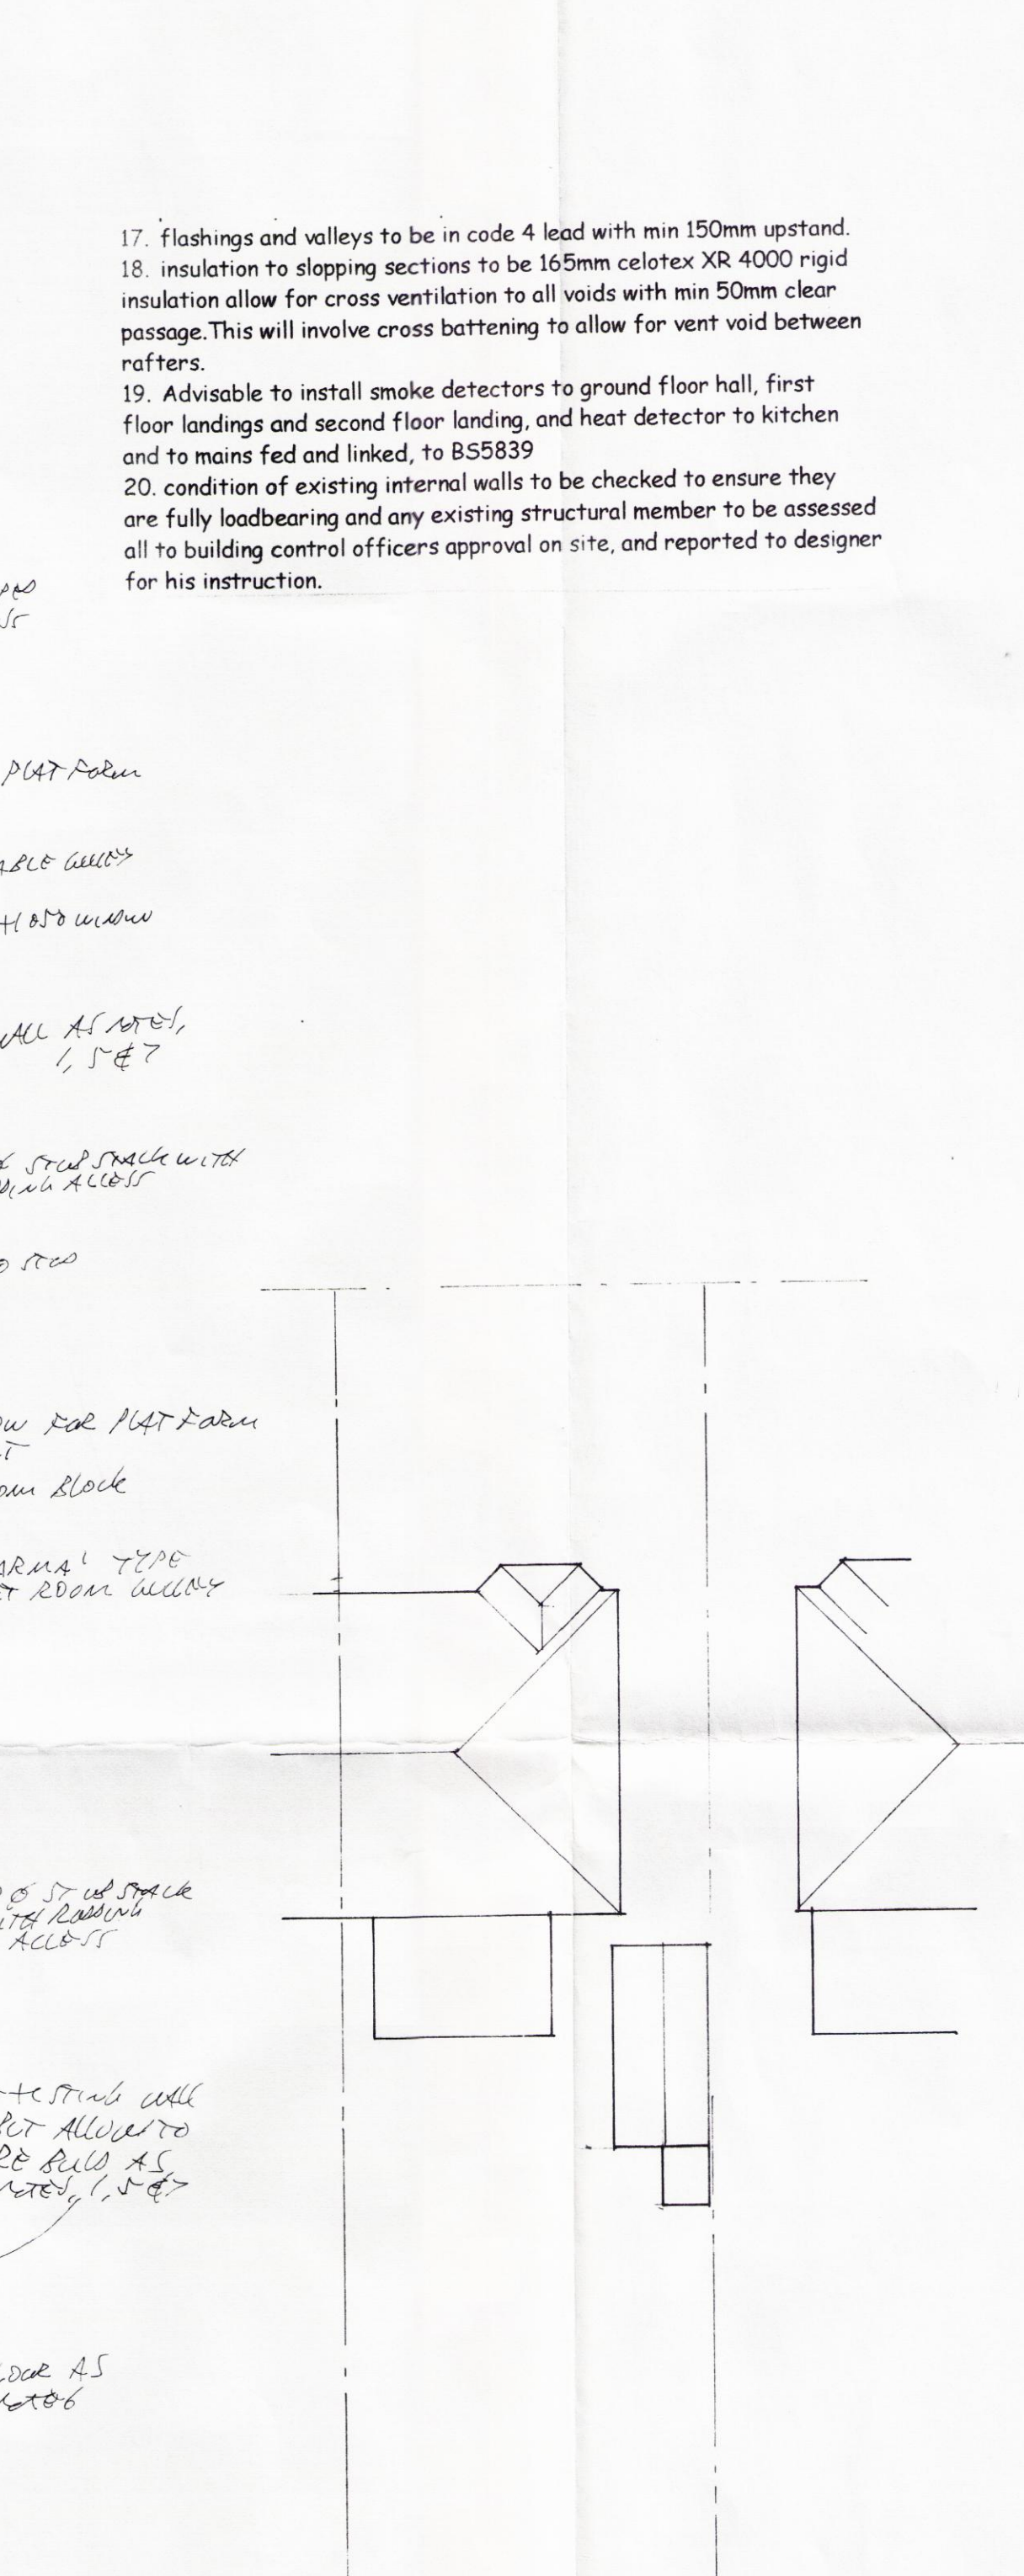 17. flashings and valleys to be in code 4 lead with min 150mm upstand.
18. insulation to slopping sections to be 165mm celotex XR 4000 rigid
insulation allow for cross ventilation to all voids with min 50mm clear
passage.This will involve cross battening to allow for vent void between
rafters.
19. Advisable to install smoke detectors to ground floor hall, first
floor landings and second floor landing, and heat detector to kitchen
and to mains fed and linked, to BS5839
20. condition of existing internal walls to be checked to ensure they
are fully loadbearing and any existing structural member to be assessed
all to building control officers approval on site, and reported to designer
for his instruction.
PLATFORM
ABLE GULLEY
+1050 WINDOW
ALL AS NOTES,
1, 5 & 7
STUB STACK WITH
ACCESS
STUD
FOR PLATFORM
BLOCK
ARMA' TYPE
ROOM GULLEY
STUB STACK
RODDING
ACCESS
WALL
ALLOW TO
BUILD AS
1, 5 & 7
AS